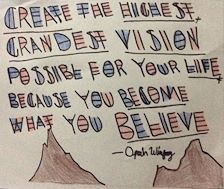 CREATE THE HIGHEST,
GRANDEST VISION
POSSIBLE FOR YOUR LIFE,
BECAUSE YOU BECOME
WHAT YOU BELIEVE
—Oprah Winfrey